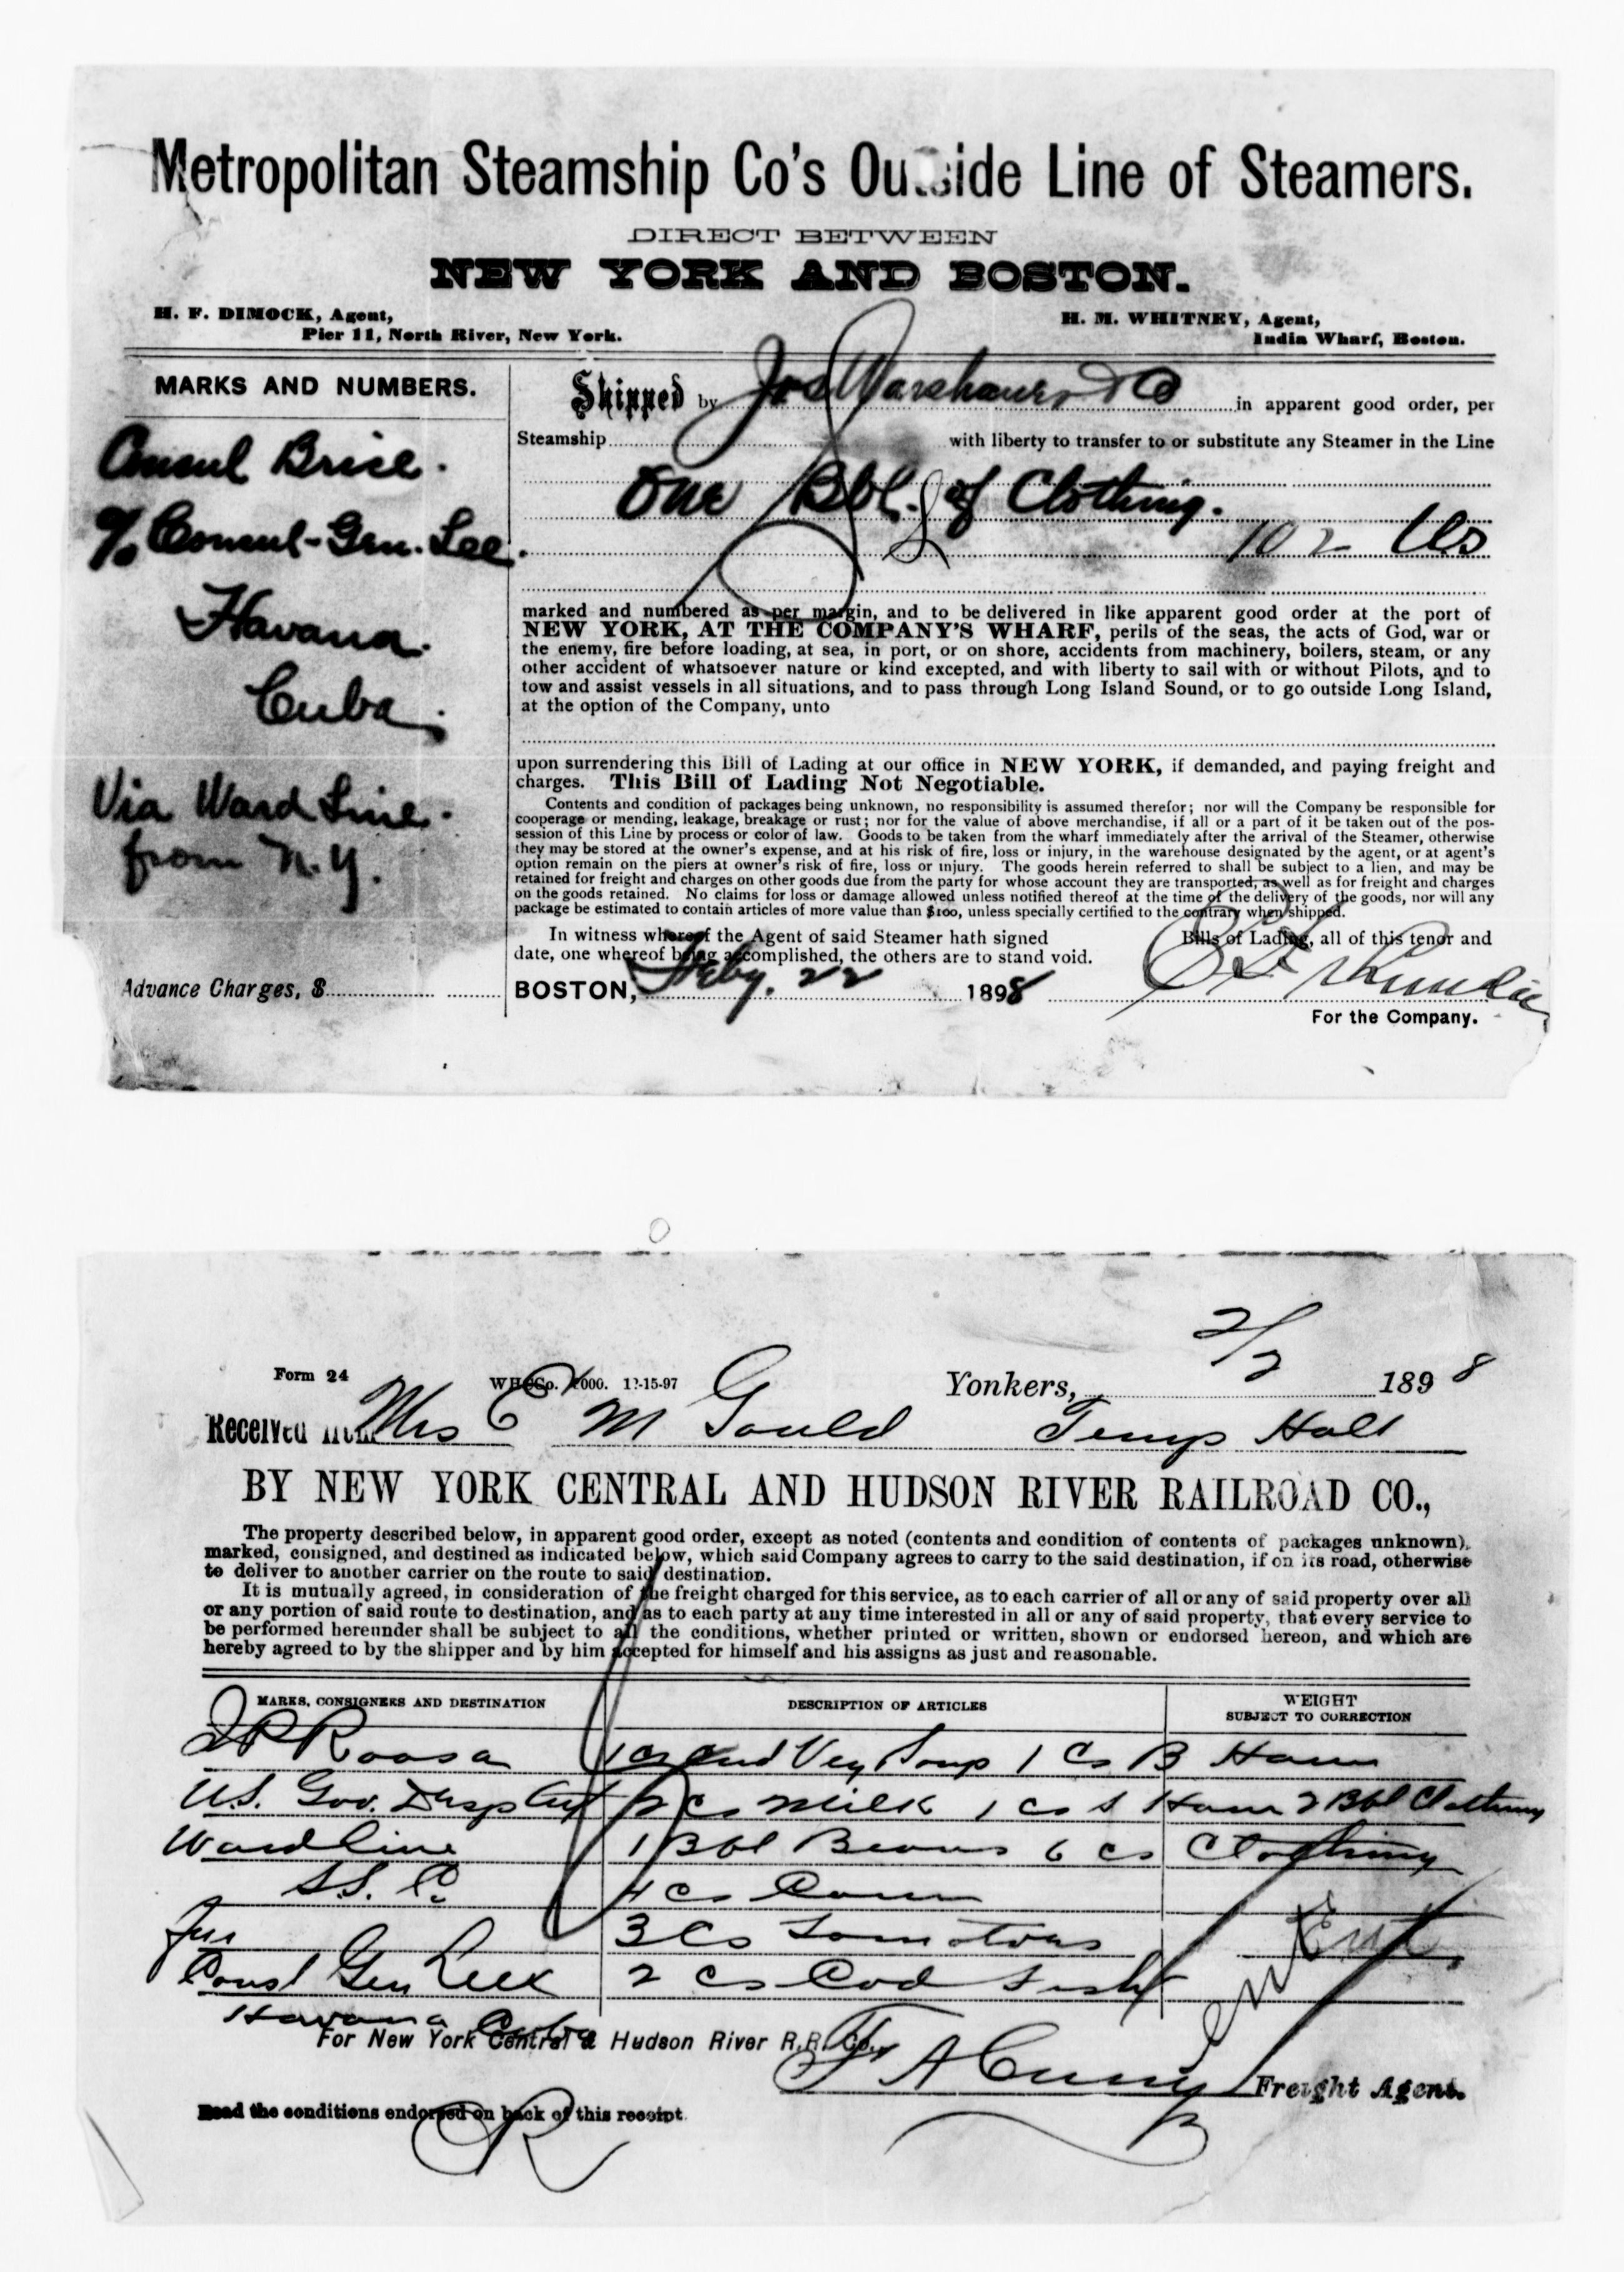 Metropolitan Steamship Co's Outside Line of Steamers.
DIRECT BETWEEN
NEW YORK AND BOSTON.
H. F. DIMOCK, Agent,
Pier 11, North River, New York.
H. M. WHITNEY, Agent,
India Wharf, Boston.
MARKS AND NUMBERS.
Consul Brice.
c/o Consul-Gen. Lee.
Havana.
Cuba.
Via Ward Line.
from N.Y.
Advance Charges, $
Shipped by Jos Warehauer & Co in apparent good order, per
Steamship with liberty to transfer to or substitute any Steamer in the Line
One Bbl. of Clothing.
102 lbs
marked and numbered as per margin, and to be delivered in like apparent good order at the port of
NEW YORK, AT THE COMPANY'S WHARF, perils of the seas, the acts of God, war or
the enemy, fire before loading, at sea, in port, or on shore, accidents from machinery, boilers, steam, or any
other accident of whatsoever nature or kind excepted, and with liberty to sail with or without Pilots, and to
tow and assist vessels in all situations, and to pass through Long Island Sound, or to go outside Long Island,
at the option of the Company, unto
upon surrendering this Bill of Lading at our office in NEW YORK, if demanded, and paying freight and
charges. This Bill of Lading Not Negotiable.
Contents and condition of packages being unknown, no responsibility is assumed therefor; nor will the Company be responsible for
cooperage or mending, leakage, breakage or rust; nor for the value of above merchandise, if all or a part of it be taken out of the pos-
session of this Line by process or color of law. Goods to be taken from the wharf immediately after the arrival of the Steamer, otherwise
they may be stored at the owner's expense, and at his risk of fire, loss or injury, in the warehouse designated by the agent, or at agent's
option remain on the piers at owner's risk of fire, loss or injury. The goods herein referred to shall be subject to a lien, and may be
retained for freight and charges on other goods due from the party for whose account they are transported, as well as for freight and charges
on the goods retained. No claims for loss or damage allowed unless notified thereof at the time of the delivery of the goods, nor will any
package be estimated to contain articles of more value than $100, unless specially certified to the contrary when shipped.
In witness whereof the Agent of said Steamer hath signed Bills of Lading, all of this tenor and
date, one whereof being accomplished, the others are to stand void.
BOSTON, Feby. 22 1898
For the Company.
2/2
Form 24
Yonkers, 1898
Received from Mrs E M Gould Temp Hall
BY NEW YORK CENTRAL AND HUDSON RIVER RAILROAD CO.,
The property described below, in apparent good order, except as noted (contents and condition of contents of packages unknown),
marked, consigned, and destined as indicated below, which said Company agrees to carry to the said destination, if on its road, otherwise
to deliver to another carrier on the route to said destination.
It is mutually agreed, in consideration of the freight charged for this service, as to each carrier of all or any of said property over all
or any portion of said route to destination, and as to each party at any time interested in all or any of said property, that every service to
be performed hereunder shall be subject to all the conditions, whether printed or written, shown or endorsed hereon, and which are
hereby agreed to by the shipper and by him accepted for himself and his assigns as just and reasonable.
MARKS, CONSIGNERS AND DESTINATION DESCRIPTION OF ARTICLES WEIGHT
SUBJECT TO CORRECTION
J P Roosa Veg Soup 1 Cs B Ham
U.S. Gov. Desp Agt 2 Cs Milk 1 Cs S Ham 2 Bbl Clothing
Ward Line 1 Bbl Beans 6 Cs Clothing
S.S. Co 4 Cs Corn
For 3 Cs Tomatoes
Consl Gen Lee 2 Cs Cod Fish
Havana Cuba
For New York Central & Hudson River R.R. Co.,
Freight Agent.
Read the conditions endorsed on back of this receipt